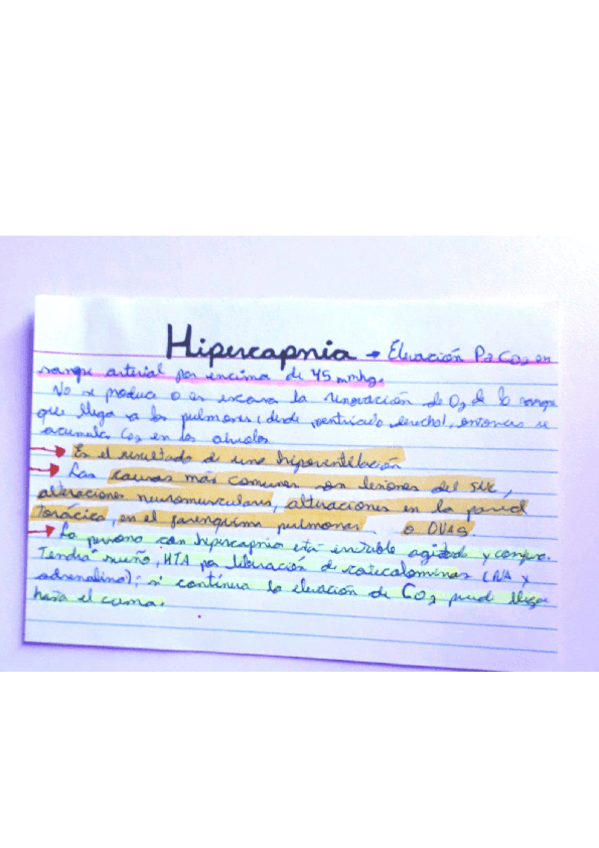 Hipercapnia → Elevación PaCO2 en
sangre arterial por encima de 45 mmhg.
No se produce o es escasa la renovación de O2 de la sangre
que llega a los pulmones (desde ventrículo derecho), entonces se
acumula CO2 en los alveolos
→ Es el resultado de una hipoventilación
→ Las causas más comunes son lesiones del SNC,
alteraciones neuromusculares, alteraciones en la pared
Torácica, en el parenquima pulmonar o OVAS.
→ La persona con hipercapnia está irritable agitada y confusa.
Tendrá sueño, HTA por liberación de catecolaminas (NA y
adrenalina); si continua la elevación de CO2 puede llegar
hasta el coma.